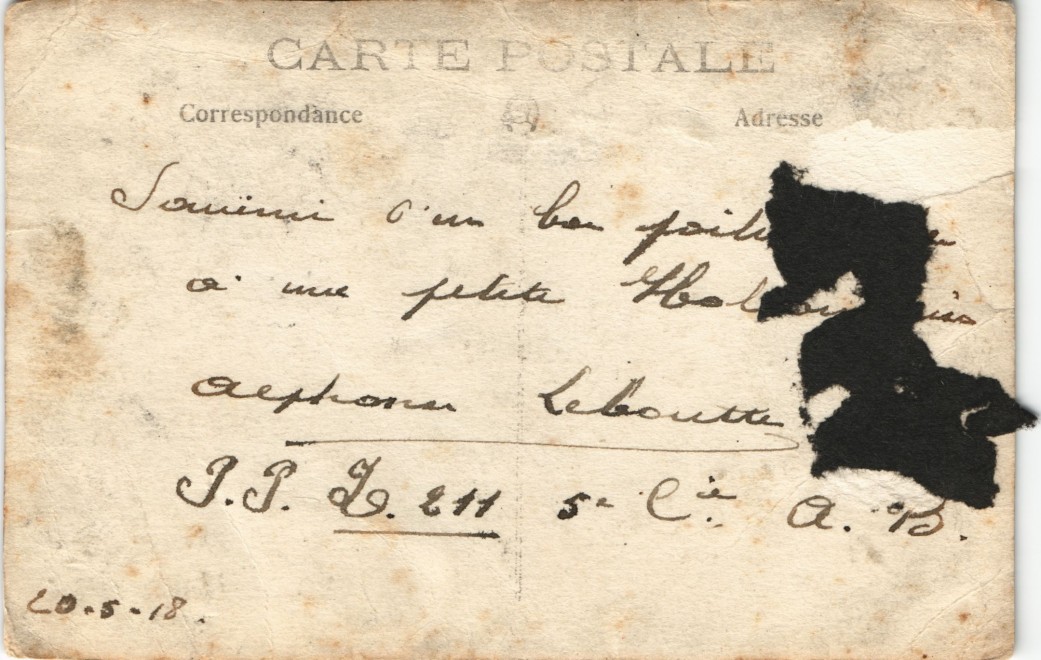 CARTE POSTALE
Correspondance Adresse
Souvenir d'un bon
à une petite
Alphonse Leboutte
P.P. Z. 211 5e Cie A. B.
20-5-18.